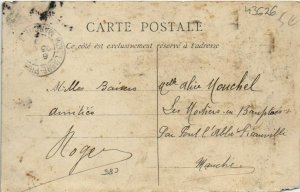 43626
CARTE POSTALE
Ce côté est exclusivement réservé à l'adresse
Milles Baisers
amitiés
Roger
383
Melle Alice Mouchel
Les Mortiers en
Par Pont l'Abbé Picauville
Manche